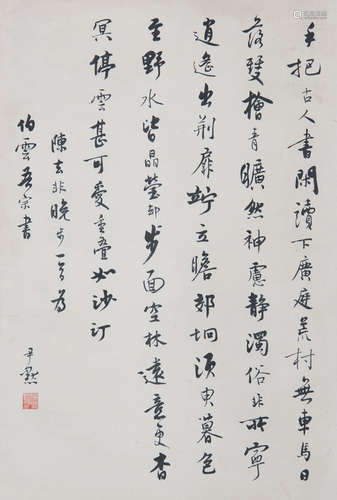 手把古人書閑讀下廣庭荒村無車馬日
落雙檜青曠然神慮静濁俗非所寧
逍遙出荆扉竚立瞻郊坰須臾暮色
至野水皆晶瑩却步面空林遠意更杳
冥停雲甚可愛重叠如沙汀
陳去非晚步一首為
伯雲吾宗書
尹默